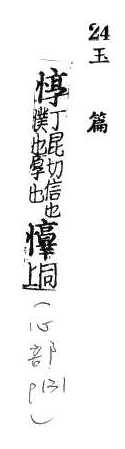 24 玉篇
惇
丁昆切信也
樸也厚也
同
上
(心部
p131)